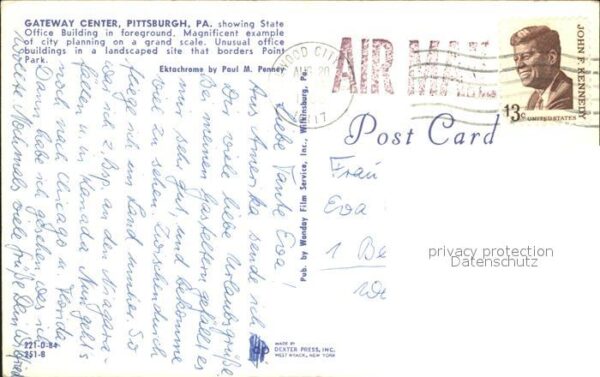 GATEWAY CENTER, PITTSBURGH, PA. showing State
Office Building in foreground. Magnificent example
of city planning on a grand scale. Unusual office
buildings in a landscaped site that borders Point
Park.
Ektachrome by Paul M. Penney
Liebe Tante Eva!
Aus Amerika sende ich
Dir viele liebe Urlaubsgrüße.
Bei meinen Gasteltern gefällt es
mir sehr gut, und bekomme
viel zu sehen. Zwischendurch
fliege ich im Land umher. So
war ich z. Bsp. an den Niagara-
fällen u. in Kanada. Nun geht's
noch nach Chicago u. Florida.
Dann habe ich gesehen, was ich
wollte. Nochmals viele Grüße Dein
221-D-84
251-B
Pub. by Wanday Film Service, Inc., Wilkinsburg, Pa.
dp
MADE BY
DEXTER PRESS, INC.
WEST NYACK, NEW YORK
WOOD CITY
AUG 20
AIR MAIL
JOHN F. KENNEDY
13c
UNITED STATES
Post Card
Frau
Eva
1 Be
privacy protection
Datenschutz